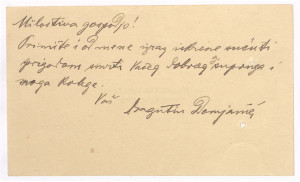 Milostiva gospođo!
Primite i od mene izraz iskrene sućuti
prigodom smrti Vašeg dobrog supruga i
moga kolege.
Vaš
Dragutin Domjanić